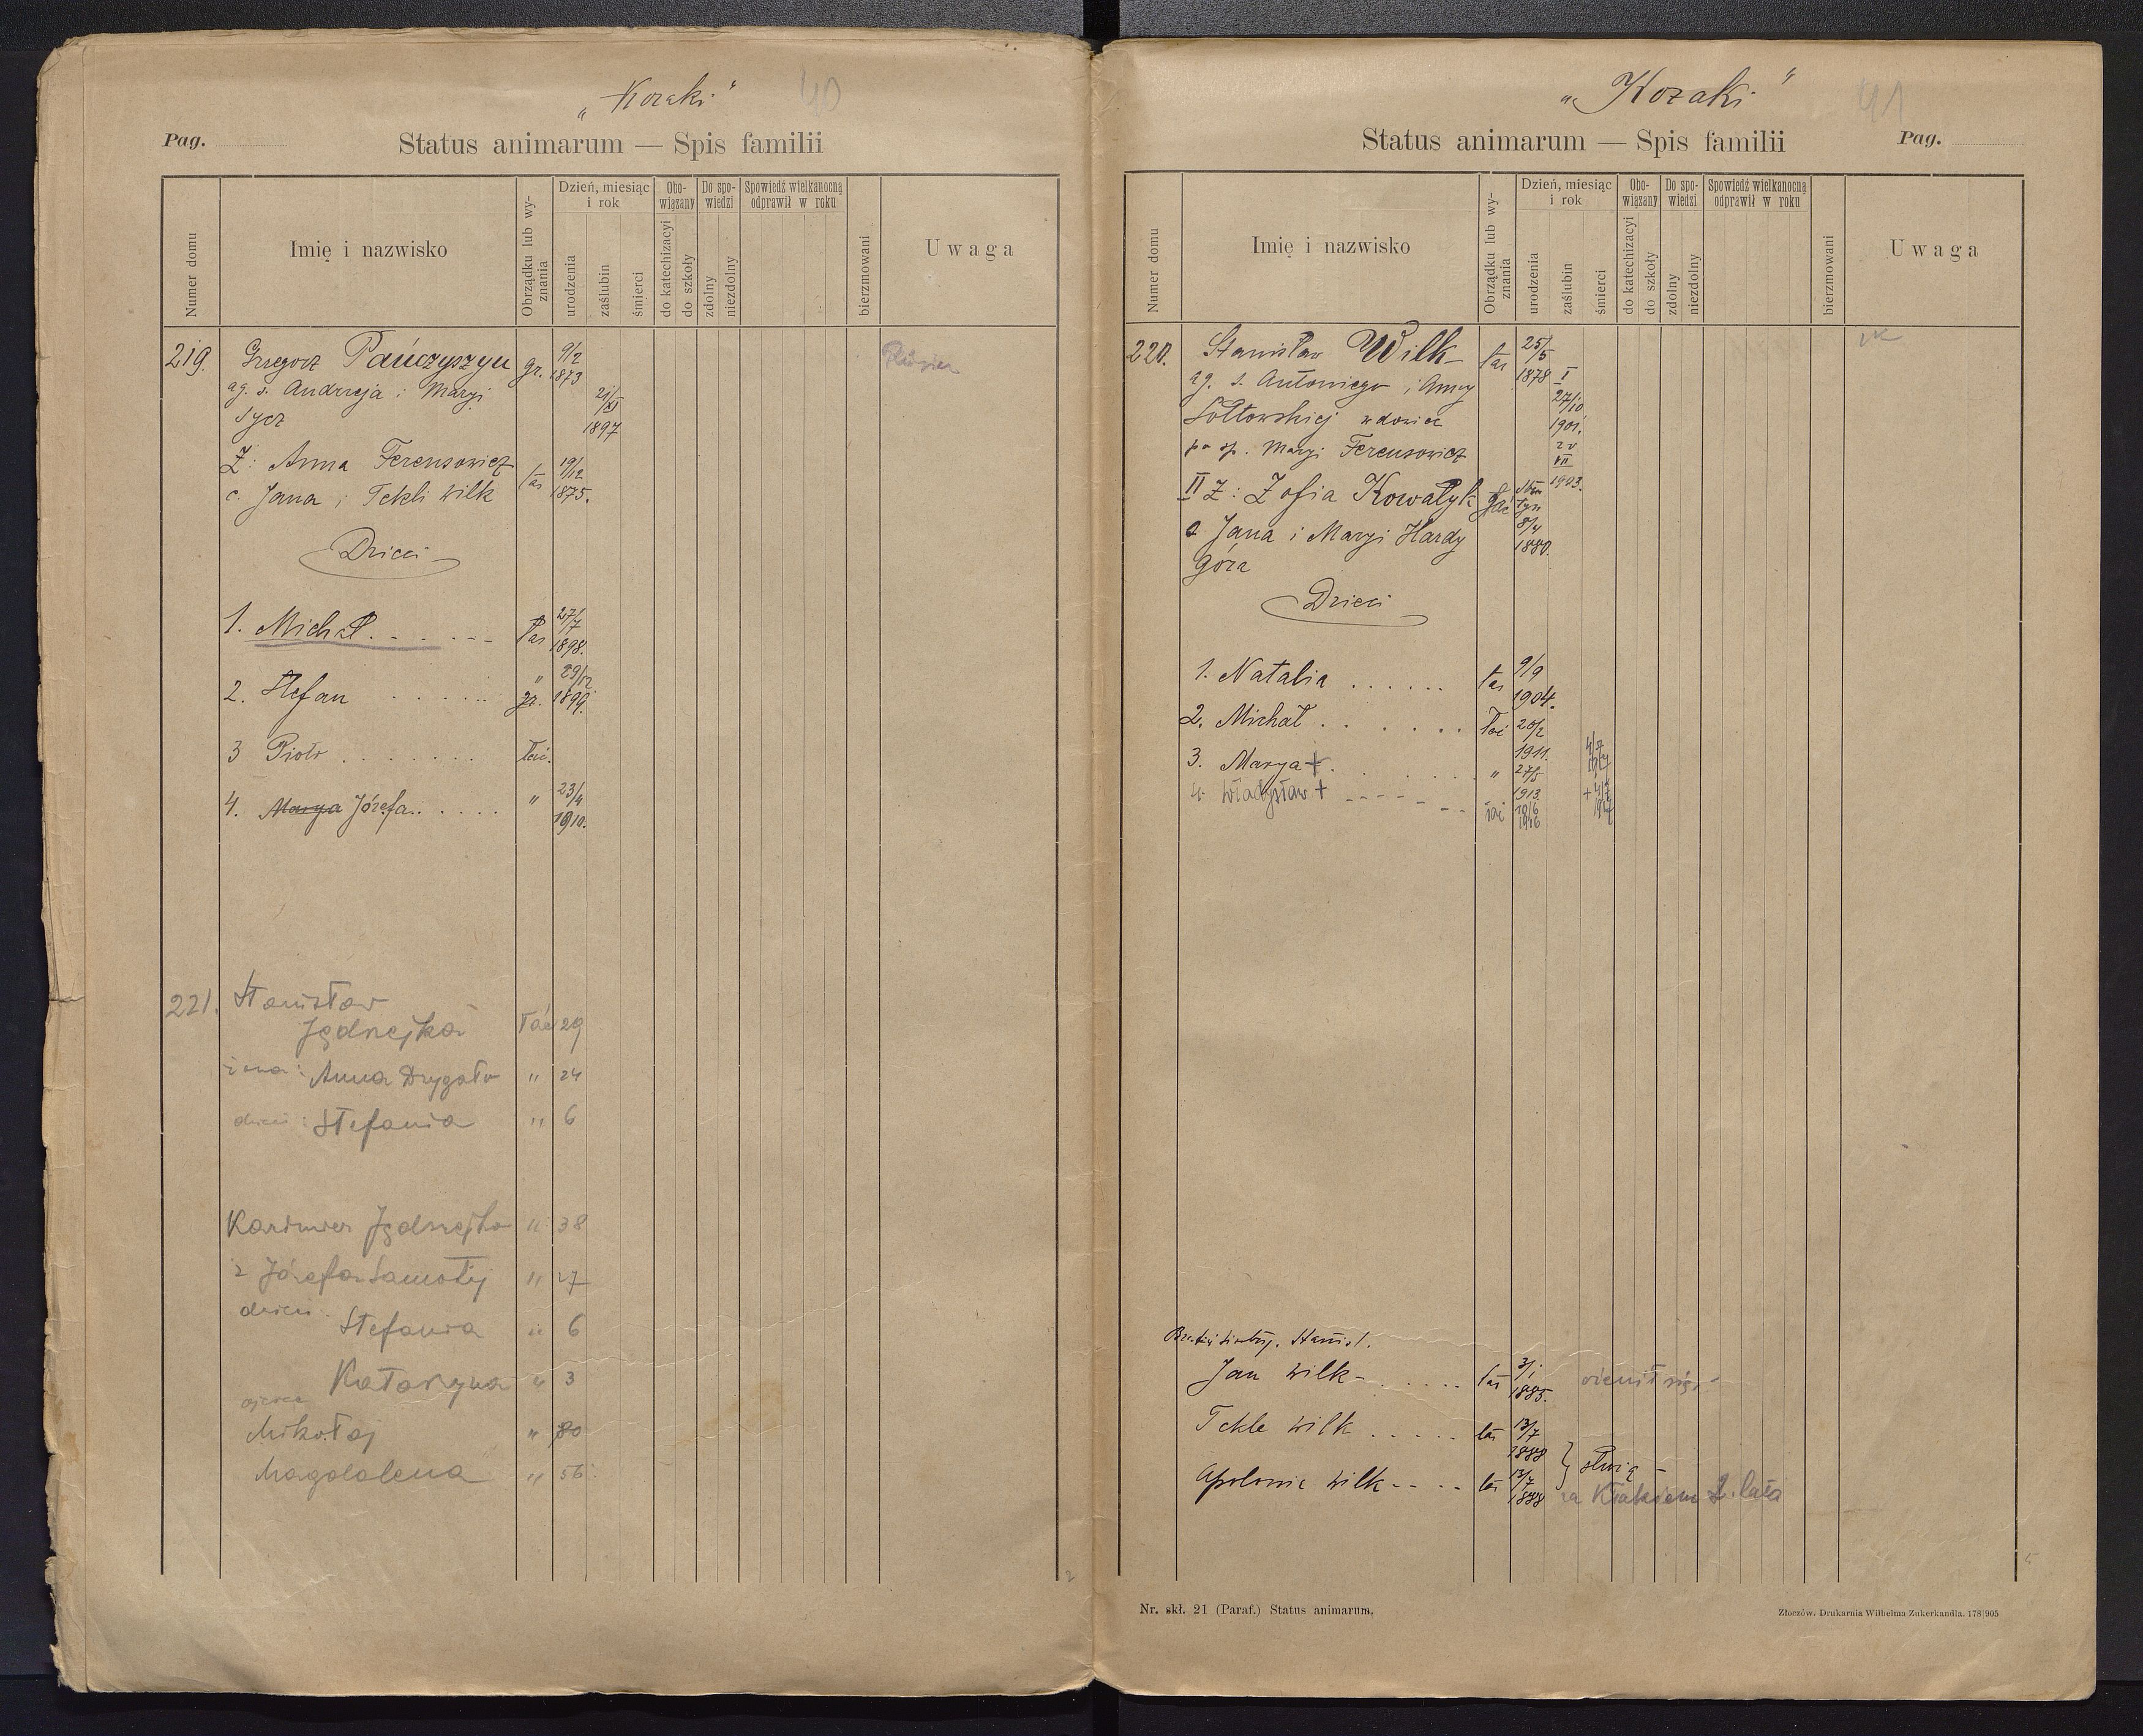 „Kozaki”
40
Pag.
Status animarum — Spis familii
Numer domu
Imię i nazwisko
Obrządku lub wyznania
Dzień, miesiąc i rok
urodzenia
zaślubin
śmierci
Obowiązany
do katechizacyi
do szkoły
Do spowiedzi
zdolny
niezdolny
Spowiedź wielkanocną odprawił w roku
bierzmowani
Uwaga
219. Grzegorz Pańczyszyn gr. 9/2 1873
ag. s. Andrzeja i Maryi 21/XI 1897
Sycz
Ż: Anna Ferensowicz łac 19/12 1875.
c. Jana i Tekli Wilk
Dzieci
1. Michał łac 27/7 1898.
2. Stefan " gr. 29/12 1899.
3 Piotr łac.
4. Marya Józefa " 23/4 1910.
221. Stanisław
Jędrzejko łac 29
żona: Anna Drygało " 24
dzieci: Stefania " 6
Kazimierz Jędrzejko " 38
ż Józefa Samołyj " 27
dzieci
Stefania " 6
Katarzyna " 3
ojciec
Mikołaj " 80
Magdalena " 56
„Kozaki”
41
Status animarum — Spis familii
Pag.
Numer domu
Imię i nazwisko
Obrządku lub wyznania
Dzień, miesiąc i rok
urodzenia
zaślubin
śmierci
Obowiązany
do katechizacyi
do szkoły
Do spowiedzi
zdolny
niezdolny
Spowiedź wielkanocną odprawił w roku
bierzmowani
Uwaga
220. Stanisław Wilk łac 25/5 1878 I
ag. s. Antoniego i Anny 27/10 1901.
Sołtowskiej wdowiec
po śp. Maryi Ferensowicz 20 VII 1903.
II Ż: Zofia Kowalyk
c Jana i Maryi Hardy 8/4 1880.
Góra
Dzieci
1. Natalia łac 9/9 1904.
2. Michał łac 20/2 1911.
3. Marya + " 27/5 1913.
4. Władysław + łac 10/6 1916
Stanisł.
Jan Wilk łac 3/1 1885. ożenił się
Tekla Wilk łac 13/7 1888
} służą
Apolonia Wilk łac 13/7 1888 2. lata
Nr. skł. 21 (Paraf.) Status animarum.
Złoczów. Drukarnia Wilhelma Zukerkandla. 178|905